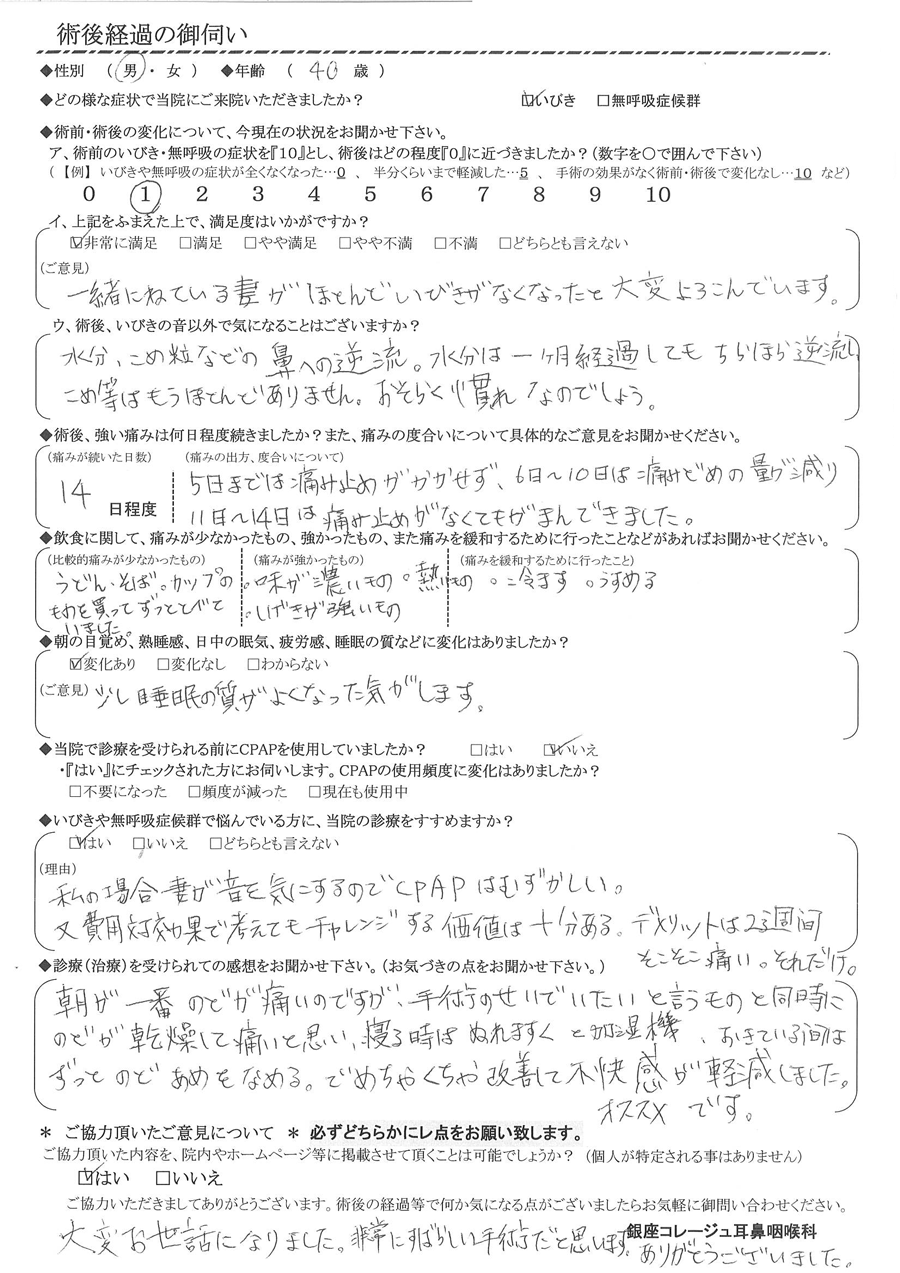 術後経過の御伺い
◆性別 (男・女) ◆年齢 (40 歳)
◆どの様な症状で当院にご来院いただきましたか? ☑いびき □無呼吸症候群
◆術前・術後の変化について、今現在の状況をお聞かせ下さい。
ア、術前のいびき・無呼吸の症状を『10』とし、術後はどの程度『0』に近づきましたか?(数字を○で囲んで下さい)
(【例】 いびきや無呼吸の症状が全くなくなった…0 、 半分くらいまで軽減した…5 、 手術の効果がなく術前・術後で変化なし…10 など)
0 1 2 3 4 5 6 7 8 9 10
イ、上記をふまえた上で、満足度はいかがですか?
☑非常に満足 □満足 □やや満足 □やや不満 □不満 □どちらとも言えない
(ご意見)
一緒にねている妻がほとんどいびきがなくなったと大変よろこんでいます。
ウ、術後、いびきの音以外で気になることはございますか?
水分、こめ粒などの鼻への逆流。水分は一ヶ月経過してもちらほら逆流し
こめ等はもうほとんどありません。おそらく慣れなのでしょう。
◆術後、強い痛みは何日程度続きましたか?また、痛みの度合いについて具体的なご意見をお聞かせください。
(痛みが続いた日数) (痛みの出方、度合いについて)
14 日程度
5日までは痛み止めがかかせず、6日〜10日は痛みどめの量が減り
11日〜14日は痛み止めがなくてもがまんできました。
◆飲食に関して、痛みが少なかったもの、強かったもの、また痛みを緩和するために行ったことなどがあればお聞かせください。
(比較的痛みが少なかったもの) (痛みが強かったもの) (痛みを緩和するために行ったこと)
うどん、そば。カップの
ものを買ってずっとたべて
いました。
・味が濃いもの。熱いもの
・しげきが強いもの
。冷ます 。うすめる
◆朝の目覚め、熟睡感、日中の眠気、疲労感、睡眠の質などに変化はありましたか?
☑変化あり □変化なし □わからない
(ご意見) 少し睡眠の質がよくなった気がします。
◆当院で診療を受けられる前にCPAPを使用していましたか? □はい ☑いいえ
・『はい』にチェックされた方にお伺いします。CPAPの使用頻度に変化はありましたか?
□不要になった □頻度が減った □現在も使用中
◆いびきや無呼吸症候群で悩んでいる方に、当院の診療をすすめますか?
☑はい □いいえ □どちらとも言えない
(理由)
私の場合妻が音を気にするのでCPAPはむずかしい。
又費用対効果で考えてもチャレンジする価値は十分ある。デメリットは2〜3週間
そこそこ痛い。それだけ。
◆診療(治療)を受けられての感想をお聞かせ下さい。(お気づきの点をお聞かせ下さい。)
朝が一番のどが痛いのですが、手術のせいでいたいと言うものと同時に
のどが乾燥して痛いと思い、寝る時はぬれますくと加湿機、おきている間は
ずっとのどあめをなめる。でめちゃくちゃ改善して不快感が軽減しました。
オススメです。
＊ ご協力頂いたご意見について ＊ 必ずどちらかにレ点をお願い致します。
ご協力頂いた内容を、院内やホームページ等に掲載させて頂くことは可能でしょうか? (個人が特定される事はありません)
☑はい □いいえ
ご協力いただきましてありがとうございます。術後の経過等で何か気になる点がございましたらお気軽に御問い合わせください。
銀座コレージュ耳鼻咽喉科
大変お世話になりました。非常にすばらしい手術だと思います。
ありがとうございました。